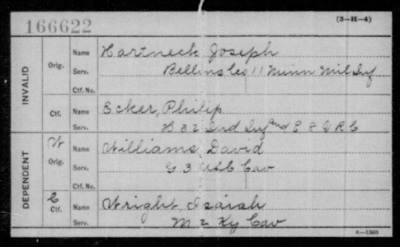 166622
(3—H—4)
INVALID
Orig.
Name Hartneck Joseph
Serv. Bellins Co 11 Minn Mil Inf
Ctf. No.
Ctf.
Name Ecker, Philip
Serv. B 32 Ind Inf and E & V R C
DEPENDENT
W
Orig.
Name Williams, David
Serv. G 3 Cav
Ctf. No.
C
Ctf.
Name Wright Isaiah
Serv. M 2 Ky Cav
6—1360